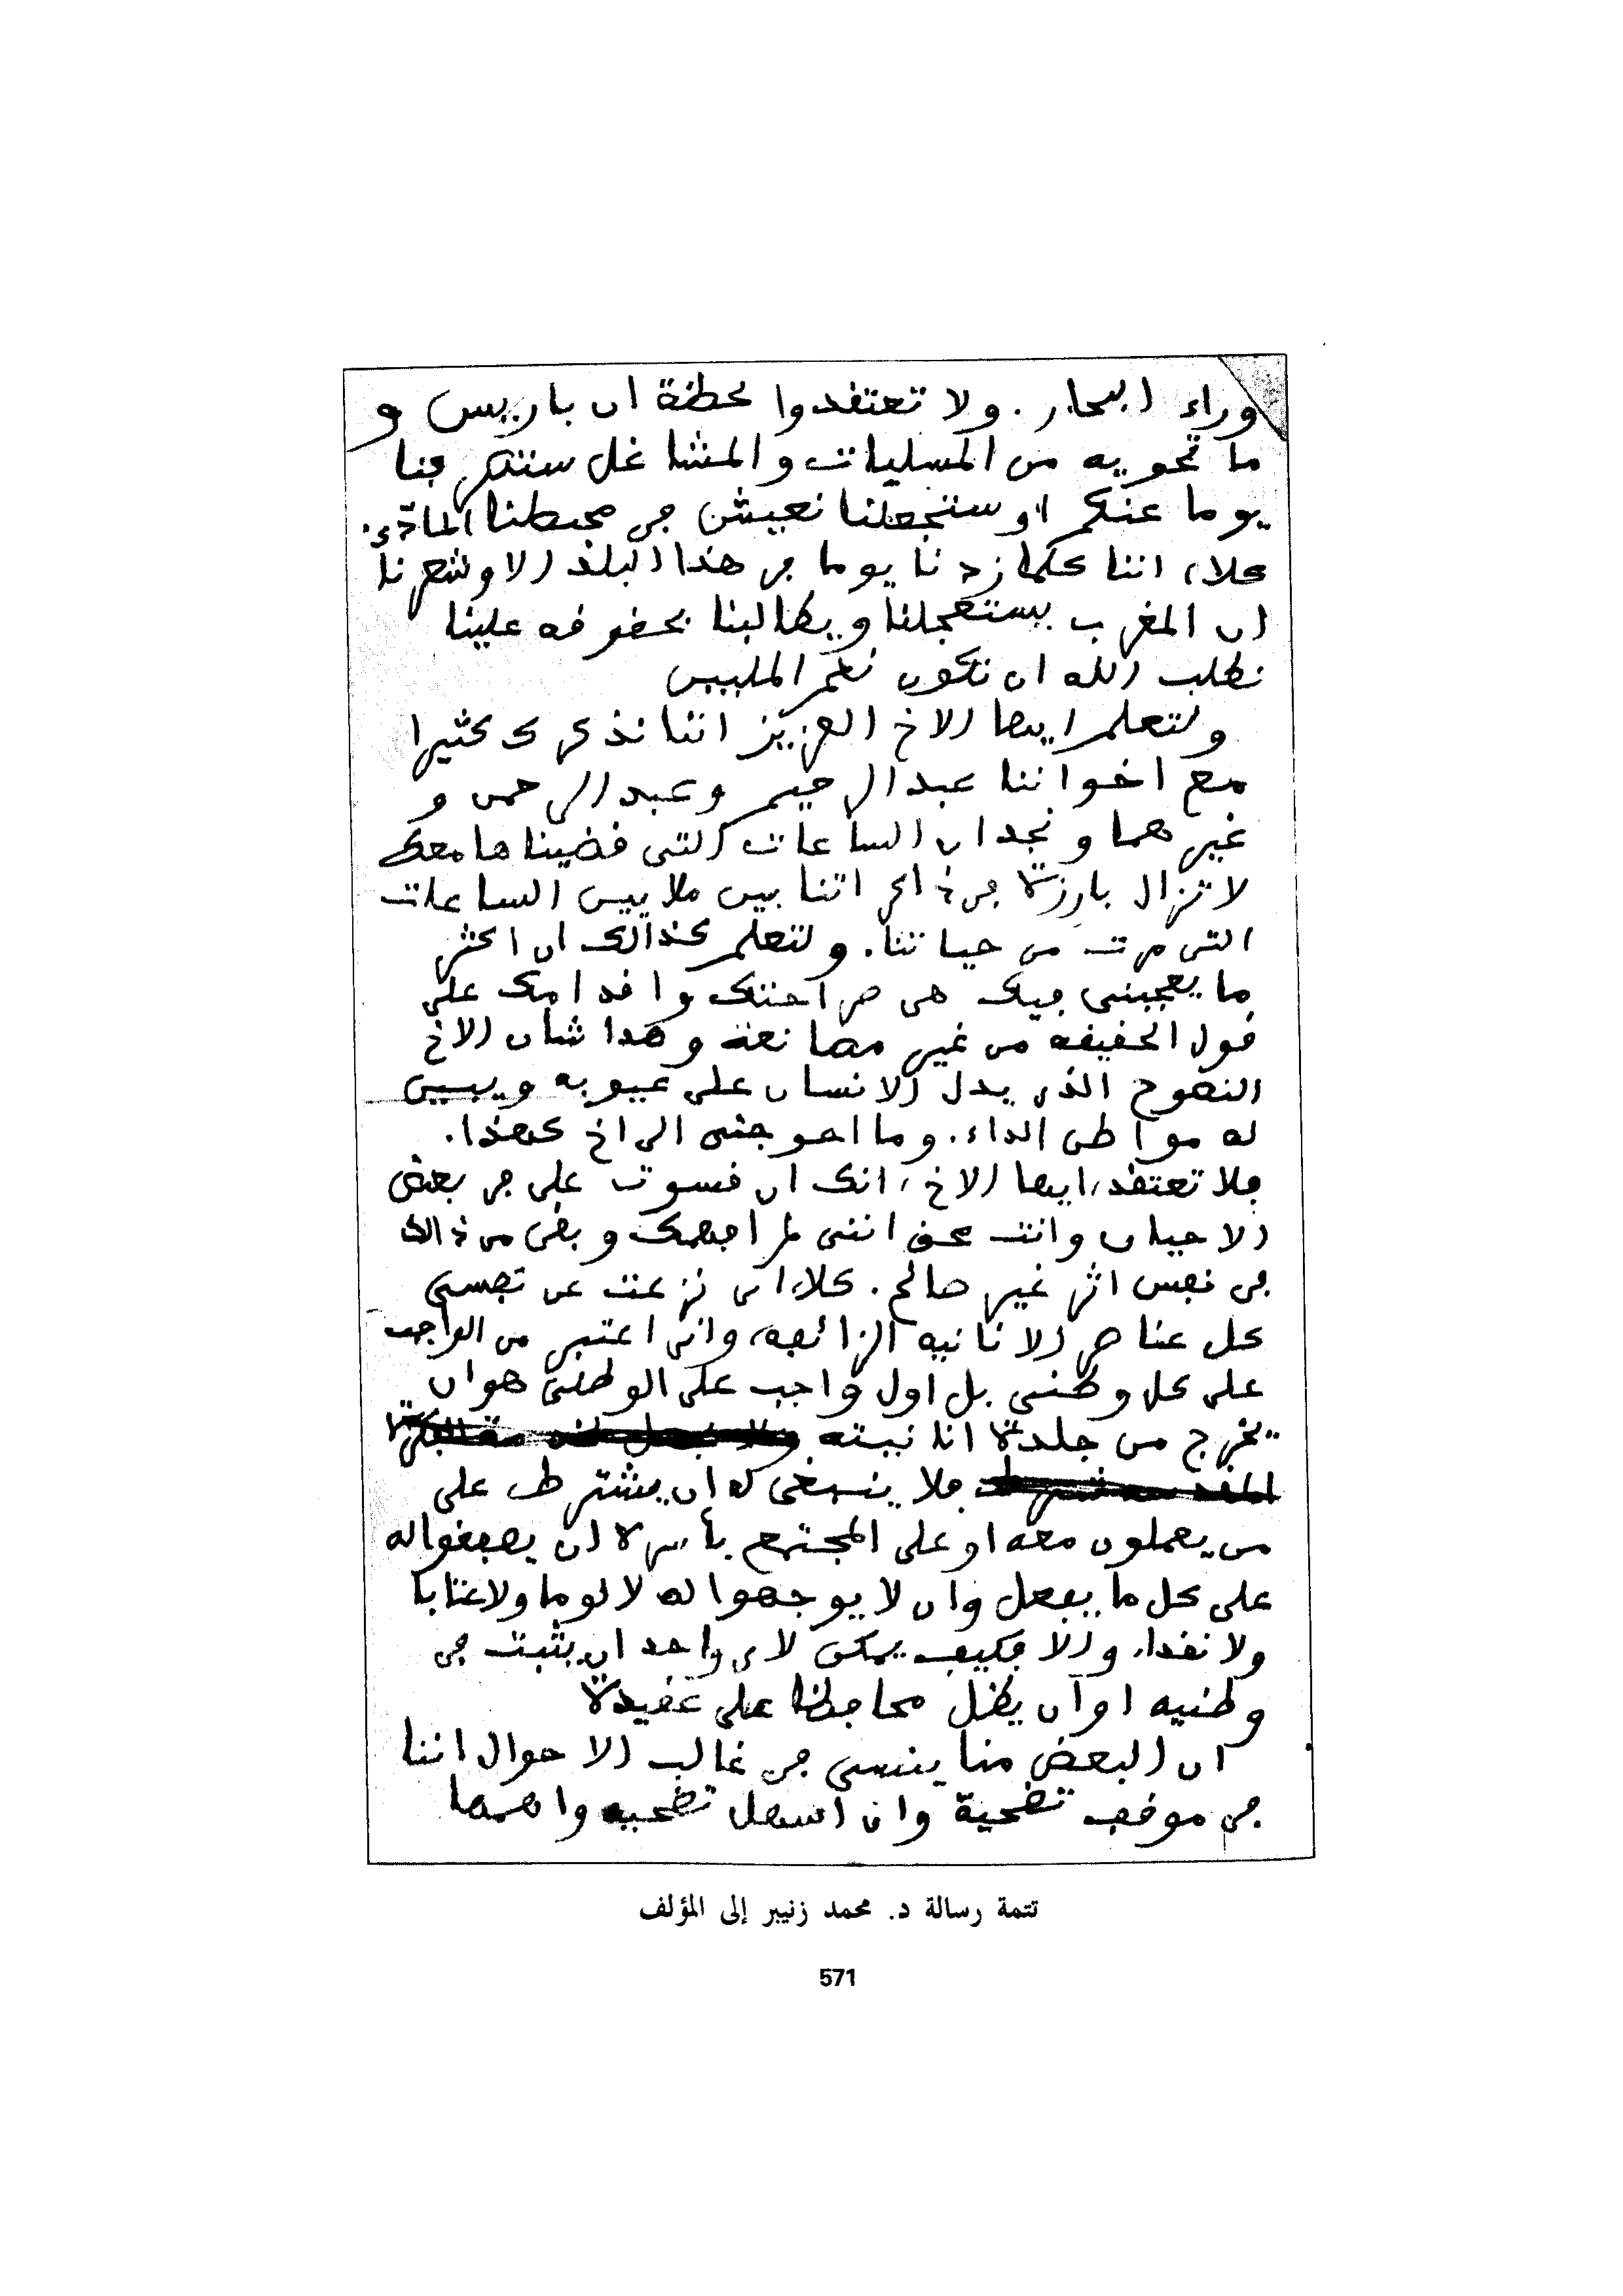 وراء البحار. ولا تعتقدوا لحظة ان باريس و
ما تحويه من المسليات والمشاغل ستشغلنا
يوما عنكم او ستجعلنا نعيش في محيطنا المادي.
كلا، اننا كلما زدنا يوما في هذا البلد الا وشعرنا
ان المغرب يستعجلنا ويطالبنا بحقوقه علينا
نطلب الله ان نكون نعم الملبيين
ولتعلم ايها الاخ العزيز اننا نذكرك كثيرا
مع اخواننا عبد الرحيم وعبد الرحمن و
غيرهما ونجد ان الساعات التي قضيناها معك
لا تزال بارزة في ذاكراتنا بين ملايين الساعات
التي مرت من حياتنا. ولتعلم كذالك ان اكثر
ما يعجبني فيك هي صراحتك واقدامك على
قول الحقيقه من غير مصانعة وهدا شان الاخ
النصوح الذي يدل الانسان على عيوبه ويبين
له مواطن الداء. وما احوجني الى اخ كهذا.
فلا تعتقد، ايها الاخ، انك ان قسوت علي في بعض
الاحيان وانت محق انني لم افهمك وبقي من ذالك
في نفسي اثر غير صالح. كلا، اني نزعت عن نفسي
كل عناصر الانانيه الزائفه، واني اعتبر من الواجب
على كل وطني بل اول واجب على الوطني هو ان
يخرج من جلدة انانيته
فلا ينبغي له ان يشترط على
من يعملون معه او على المجتمع بأسره ان يصفقوا له
على كل ما يفعل وان لا يوجهوا له لا لوما ولا عتابا
ولا نقدا. والا فكيف يمكن لاي واحد ان يثبت في
وطنيه او ان يظل محافظا على عقيدة
ان البعض منا ينسى في غالب الاحوال اننا
في موقف تضحية وان اسهل تضحيه واهمها
تتمة رسالة د. محمد زنيبر إلى المؤلف
571